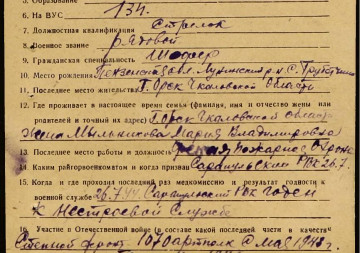 5. Образование
6. На ВУС 134.
7. Должностная квалификация Стрелок
8. Военное звание рядовой
9. Гражданская специальность Шофер
10. Место рождения Пензенская обл. Лунинский р-н с.
11. Последнее место жительства г. Орск Чкаловской области
12. Где проживает в настоящее время семья (фамилия, имя и отчество жены или
родителей и точный их адрес) г. Орск Чкаловской области
Жена Мыльникова Мария Владимировна
13. Последнее место работы и должность Пожарно Охрона
14. Каким райгорвоенкоматом и когда призван Сарапульский РВК 26.7.
15. Когда и где проходил последний раз медкомиссию и результат годности к
военной службе 26.7.44. Сарапульский РВК годен
к нестроевой службе
16. Участие в Отечественной войне (в составе какой последней части и в качестве
Степной фронт 1070 артполк с мая 1943 г.